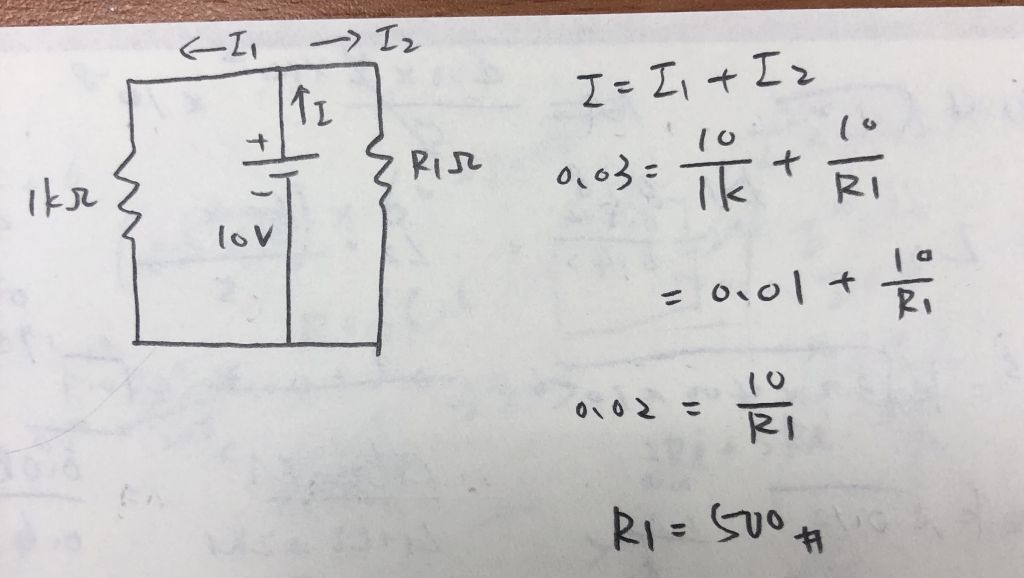 ←I₁ → I₂
↑I
+
1kΩ
R1Ω
-
10V
I = I₁ + I₂
0.03 = 10/1k + 10/R1
= 0.01 + 10/R1
0.02 = 10/R1
R1 = 500 #